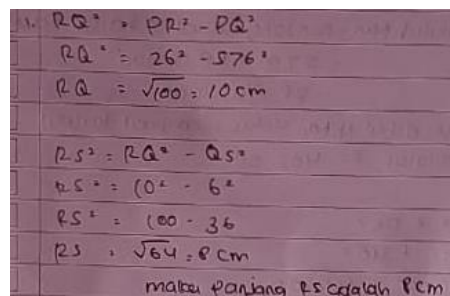 1. RQ² = PR² - PQ²
RQ² = 26² - 576²
RQ = √100 = 10 cm
RS² = RQ² - QS²
RS² = 10² - 6²
RS² = 100 - 36
RS = √64 = 8 cm
maka panjang RS adalah 8 cm